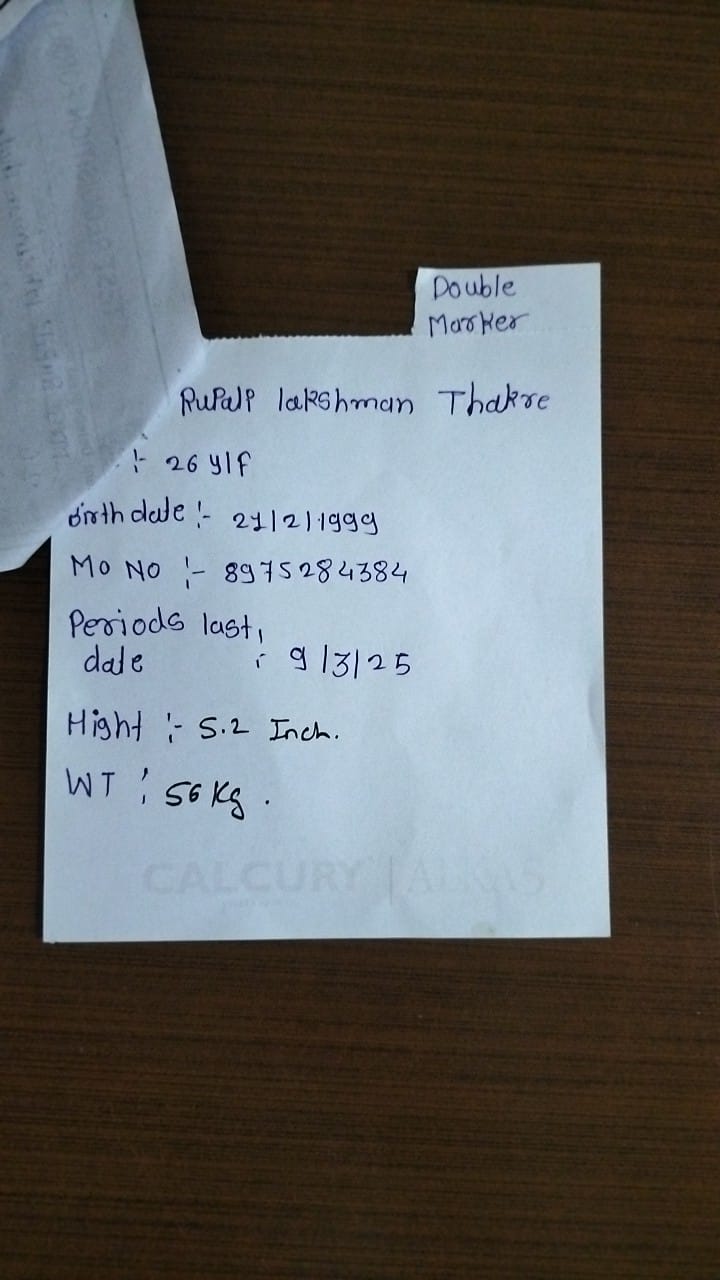 Double
Marker
Rupali lakshman Thakre
:- 26 y/f
Birth date :- 21/2/1999
Mo No :- 8975284384
Periods last,
date : 9/3/25
Hight :- 5.2 Inch.
WT : 56 Kg.
CALCURY